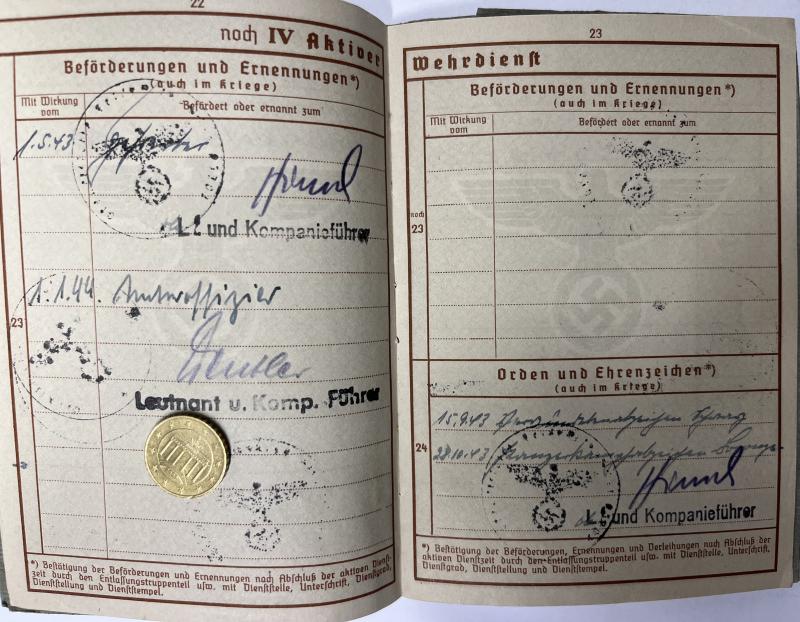 22
noch IV Aktiver
Beförderungen und Ernennungen*)
(auch im Kriege)
Mit Wirkung vom
Befördert oder ernannt zum
1.5.43 Gefreiter
Lt und Kompanieführer
1.1.44. Unteroffizier
23
Leutnant u. Komp. Führer
*) Bestätigung der Beförderungen und Ernennungen nach Abschluß der aktiven Dienst-
zeit durch den Entlassungstruppenteil usw. mit Dienststelle, Unterschrift, Dienstgrad,
Dienststellung und Dienststempel.
23
Wehrdienst
Beförderungen und Ernennungen*)
(auch im Kriege)
Mit Wirkung vom
Befördert oder ernannt zum
noch
23
Orden und Ehrenzeichen*)
(auch im Kriege)
15.9.43 Verwundetenabzeichen
24
28.10.43 Panzerkampfabzeichen
Lt und Kompanieführer
*) Bestätigung der Beförderungen, Ernennungen und Verleihungen nach Abschluß der
aktiven Dienstzeit durch den Entlassungstruppenteil usw. mit Dienststelle, Unterschrift,
Dienstgrad, Dienststellung und Dienststempel.